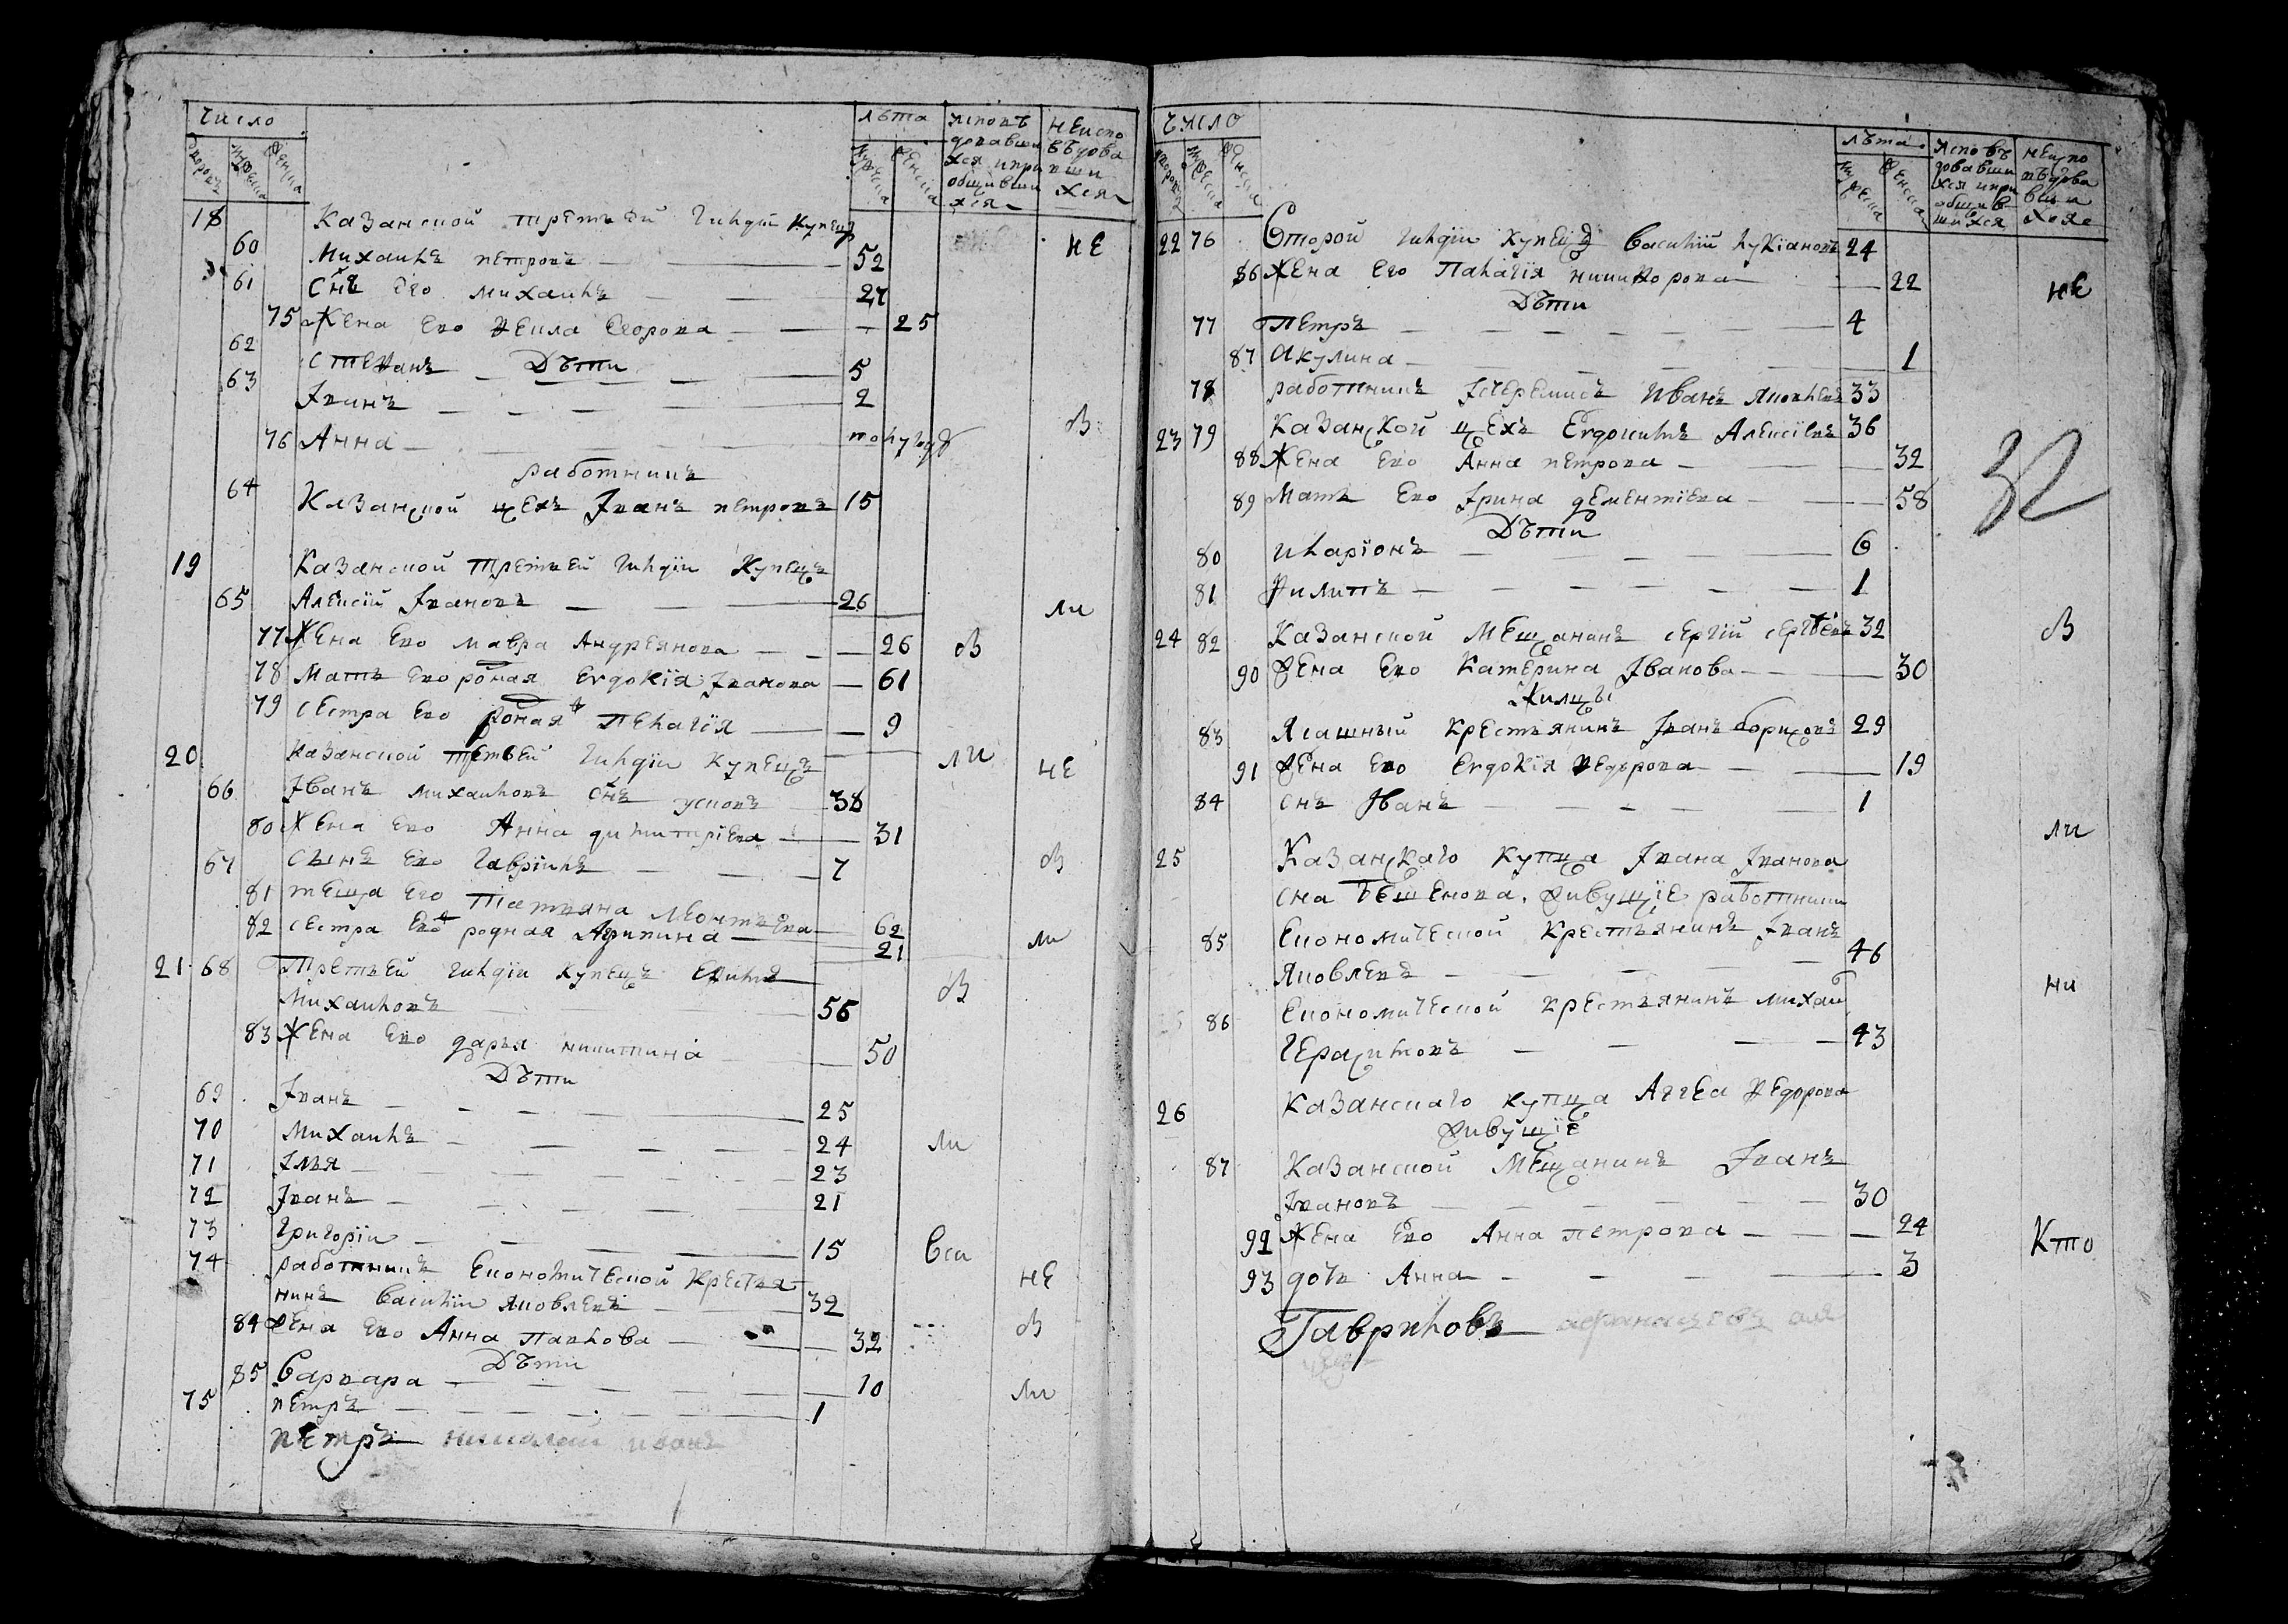 Число
лѣта
исповѣ
довавши
хся и при
общивши
хся
неиспо
вѣдова
вши
хся
дворовъ
мужеска
женска
мужеска
женска
18 Казанской третьей гилдіи купецъ
60 Михаилъ петровъ 52 не
61 Снъ его михаилъ 27
75 Жена Ево Фекла Егорова 25
Дѣти
62 Стефанъ 5
63 Іванъ 2
76 Анна полугоду в
работникъ
64 Казанской цехъ Іванъ петровъ 15
19 Казанской Третьей гилдіи Купецъ
65 Алексій Івановъ 26 ли
77 Жена Ево мавра Андреянова 26 в
78 Мать Ево роная Евдокія Іванова 61
79 сестра Ево роная пелагія 9
20 казанской третьей гилдіи купецъ ли не
66 Іванъ михаиловъ снъ усковъ 38
80 Жена Ево Анна димитріева 31
67 сынъ Ево гавріилъ 7 в
81 теща Его Татьяна Леонтьева 62
82 сестра Ево родная Агрипина 21 ли
21 68 Третьей гилдіи купецъ
Михаиловъ 56 в
83 Жена Ево дарья никитина 50
Дѣти
69 Іванъ 25
70 Михаилъ 24 ли
71 Ілья 23
72 Іванъ 21
73 григоріи 15 вси
74 работникъ Економической крестья- не
нинъ василіи яковлевъ 32
84 Жена Ево Анна павлова 32 в
Дѣти
85 варвара 10
75 петръ 1 ли
петръ николаи иванъ
число
лѣта
исповѣ
довавши
хся и при
общив
шихся
неиспо
вѣдова
вши
хся
дворовъ
мужеска
женска
мужеска
женска
22 76 Второй гилдіи купецъ василій лукіановъ 24
86 Жена его Палагія никифорова 22 не
Дѣти
77 Петръ 4
87 Акулина 1
78 работникъ Ісчеремисъ Иванъ Яковлевъ 33
23 79 Казанской цехъ Евдокимъ Алексіевъ 36
88 Жена Ево Анна петрова 32
32
89 Мать Ево Ірина дементіева 58
Дѣти
80 иларіонъ 6
81 Филипъ 1
24 82 Казанской Мещанинъ сергій сергѣевъ 32 в
90 Жена Ево Катерина Іванова 30
Жилцы
83 Ясашный крестьянинъ Іванъ борисовъ 29
91 Жена Ево Евдокія Федорова 19
84 снъ Іванъ 1
ли
25 Казанскаго купца Івана Іванова
сна живущіе работники
85 Економической Крестьянинъ Іванъ
Яковлевъ 46
ни
86 Економической крестьянинъ михаи
герасимовъ 43
26 Казанскаго купца Аггея Федорова
живущіе
87 Казанской Мещанинъ Іванъ
Івановъ 30
92 Жена Ево Анна петрова 24
Кто
93 дочь Анна 3
Гавриловъ